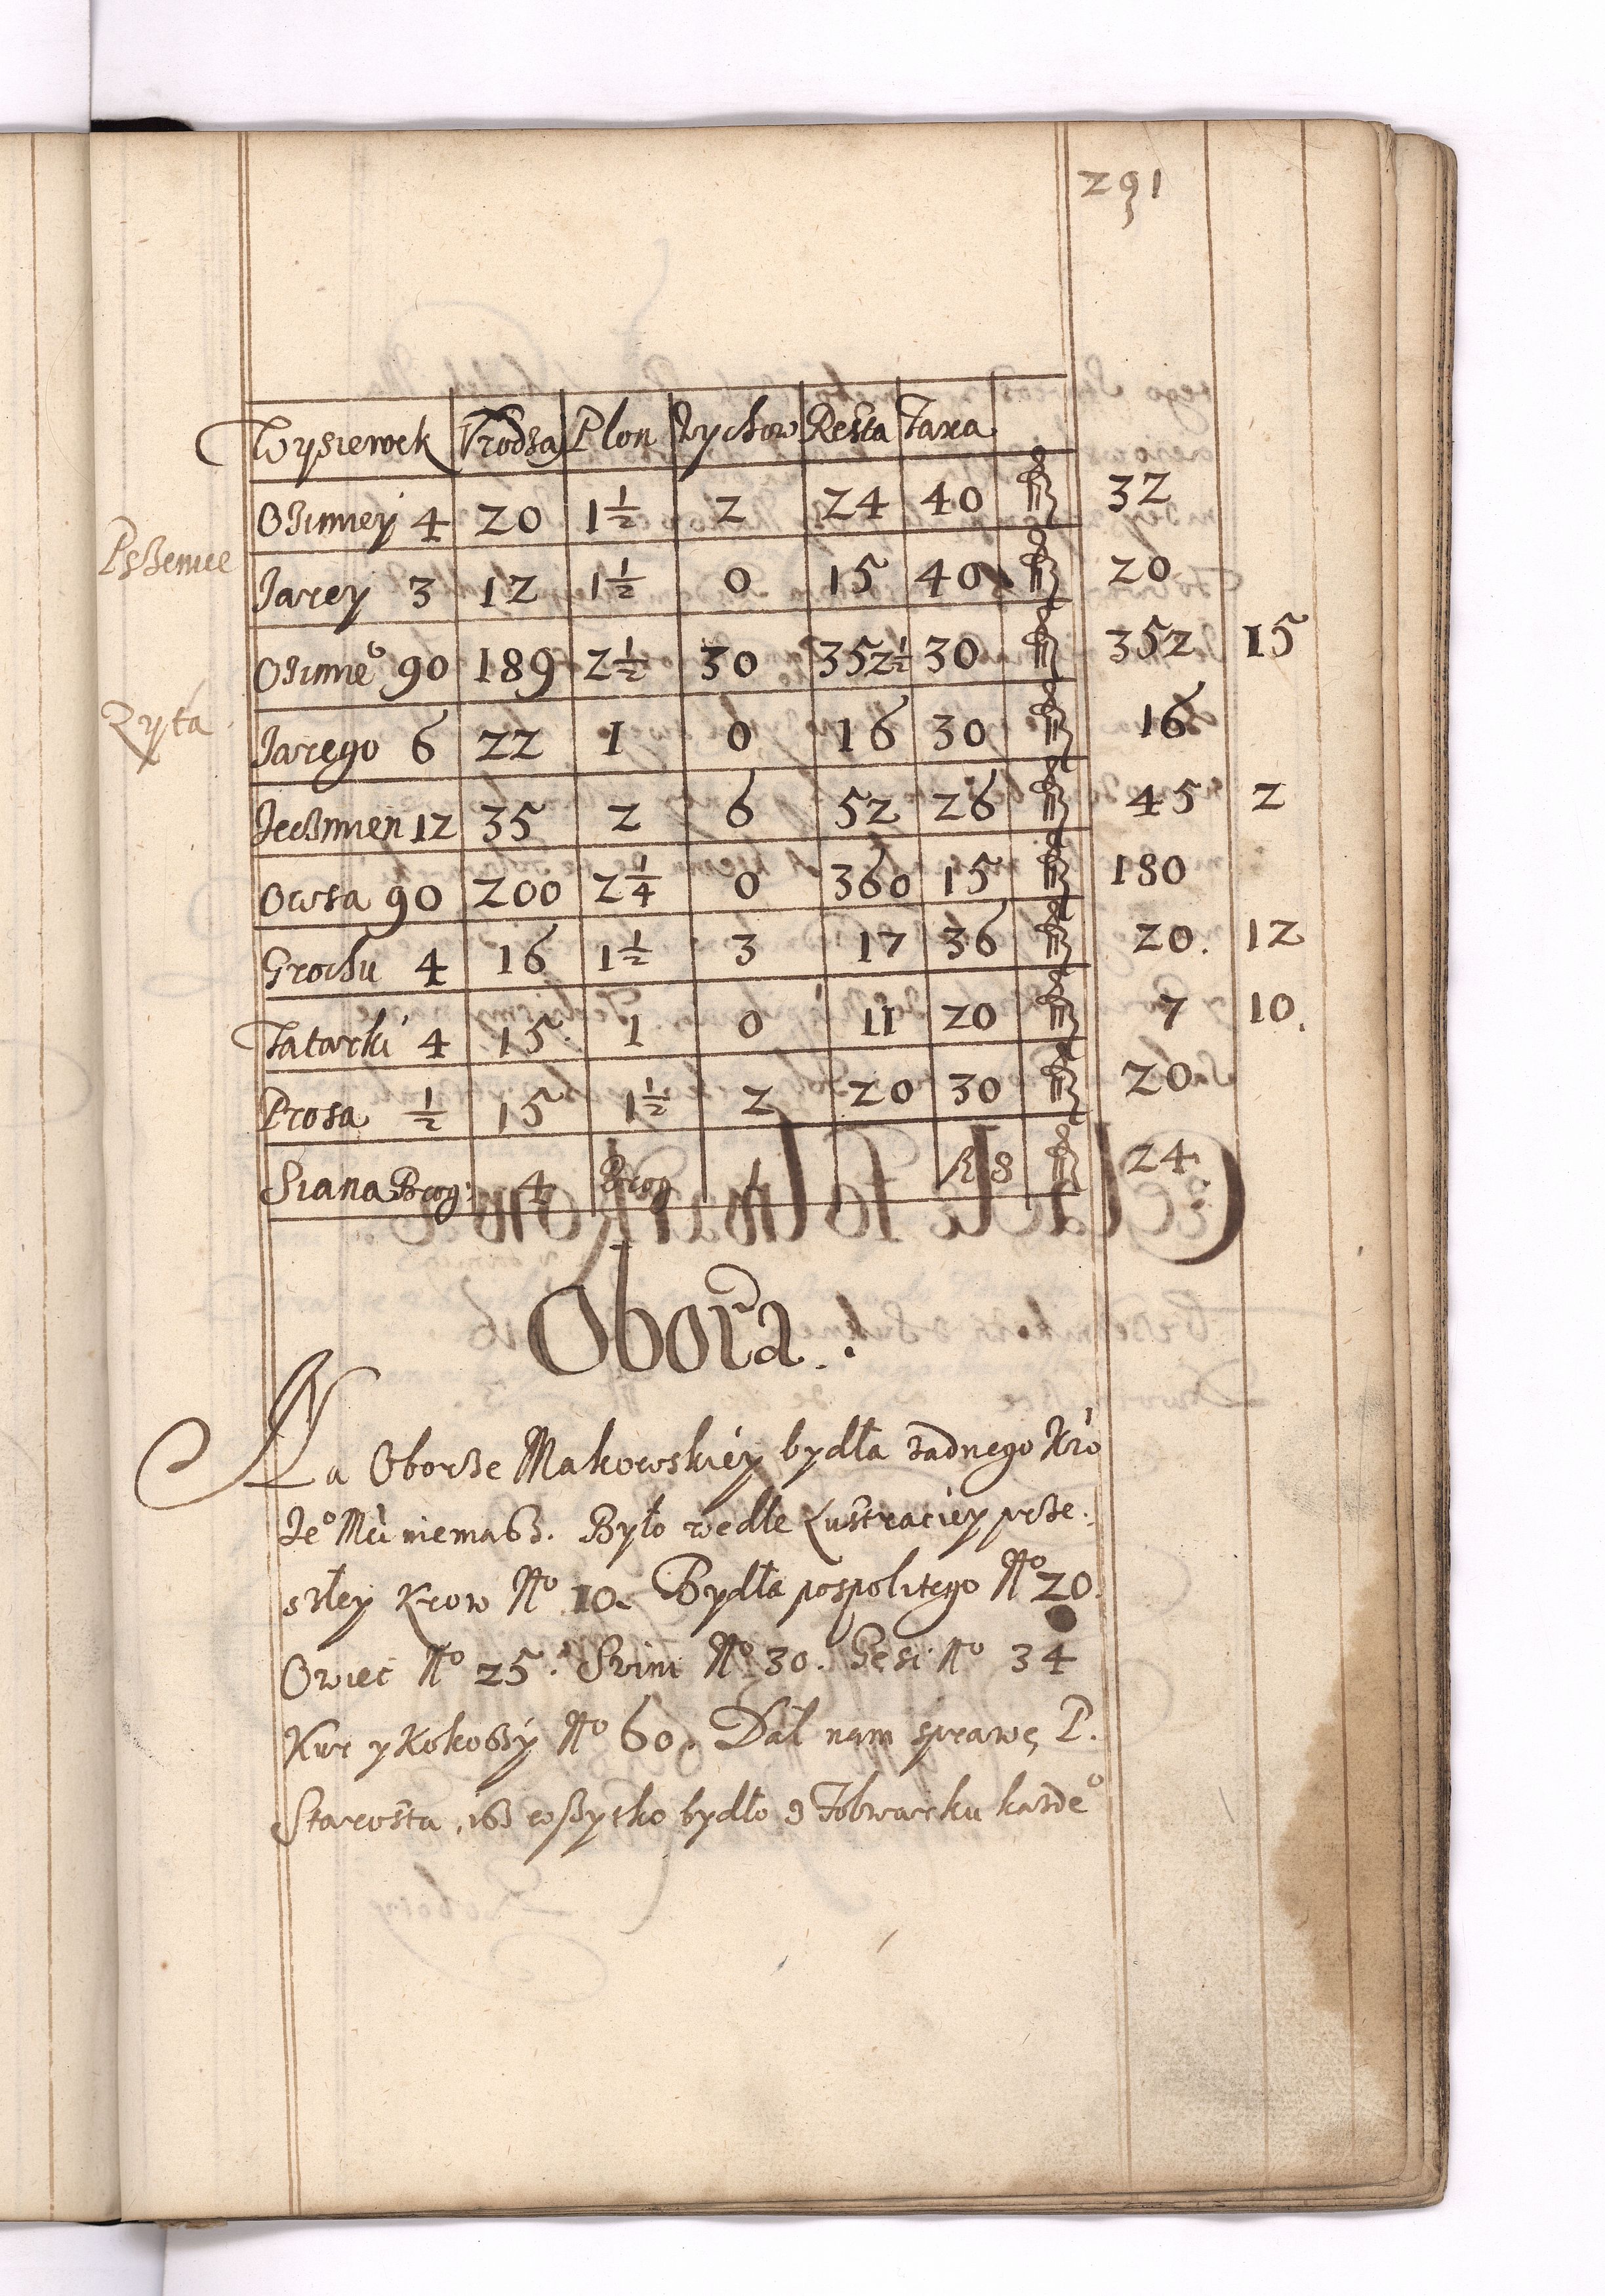 291
Wysiewek Vrodza Plon Wychow Resta Taxa
Pszenice
Ozimiey 4 20 1½ 2 24 40 32
Jarey 3 12 1½ 0 15 40 20
Zyta
Ozime° 90 189 2½ 30 352½ 30 352 15
Jarego 6 22 1 0 16 30 16
Jeczmien 12 35 2 6 52 26 45 2
Owsa 90 200 2¼ 0 360 15 180
Grochu 4 16 1½ 3 17 36 20. 12
Tatarki 4 15. 1 0 11 20 7 10.
Prosa ½ 15 1½ 2 20 30 20
Siana Brog: 4 Brog 1 8 24.
Obora.
Na Oborze Makowskiéy bydła zadnego Kro
Je° Mci niemasz. Było wedle Lustraciey prze:
szłey Krow N° 10. Bydła pospolitego N° 20.
Owiec N° 25. Swini N° 30. Gęsi N° 34
Kur y Kokoszy N° 60. Dał nam sprawę P.
Starosta, isz wszytko bydło z Folwarku kazde°